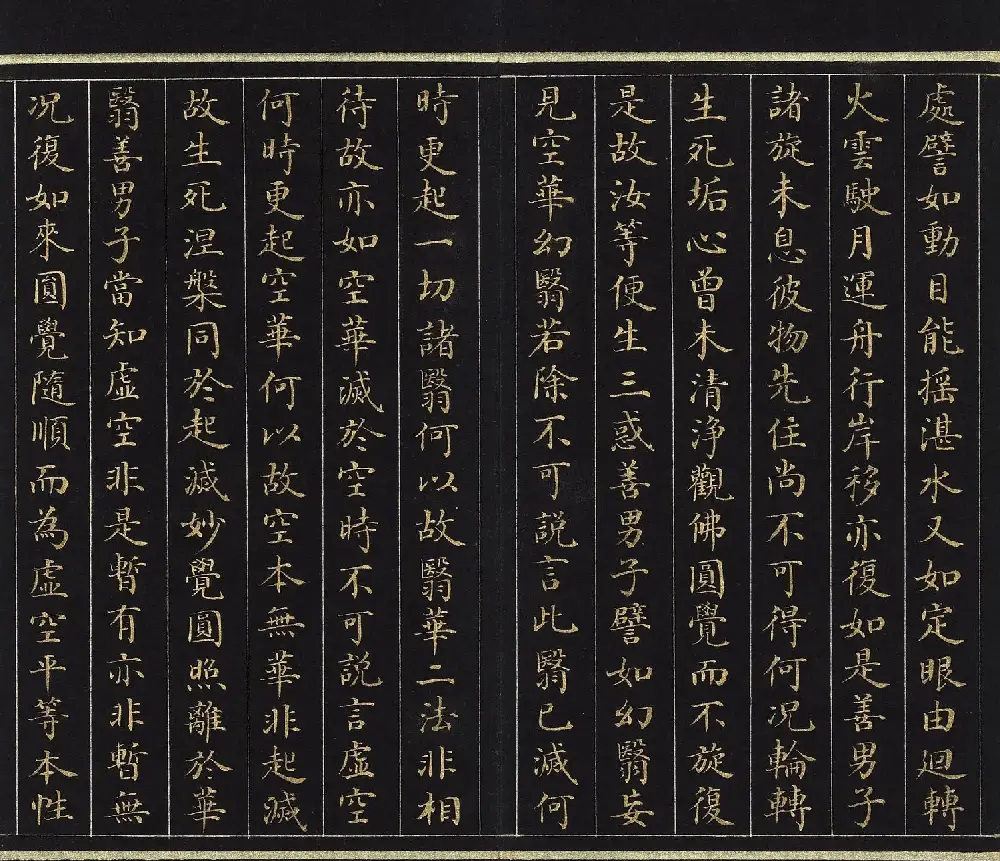 處譬如動目能搖湛水又如定眼由廻轉
火雲駛月運舟行岸移亦復如是善男子
諸旋未息彼物先住尚不可得何况輪轉
生死垢心曾未清淨觀佛圓覺而不旋復
是故汝等便生三惑善男子譬如幻翳妄
見空華幻翳若除不可説言此翳已滅何
時更起一切諸翳何以故翳華二法非相
待故亦如空華滅於空時不可説言虛空
何時更起空華何以故空本無華非起滅
故生死涅槃同於起滅妙覺圓照離於華
翳善男子當知虛空非是暫有亦非暫無
况復如來圓覺隨順而為虛空平等本性